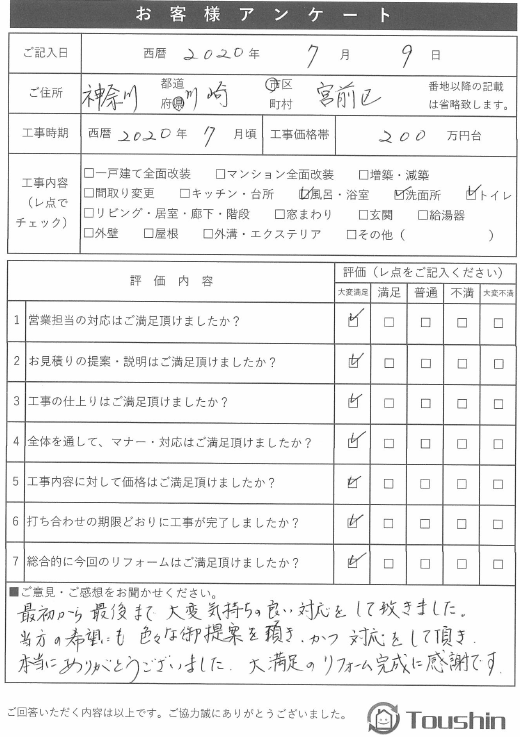 お客様アンケート
ご記入日 西暦 2020年 7月 9日
ご住所 神奈川 都道府県 川崎 市区町村 宮前区 番地以降の記載は省略致します。
工事時期 西暦 2020年 7月頃 工事価格帯 200万円台
工事内容（レ点でチェック）
□一戸建て全面改装 □マンション全面改装 □増築・減築
□間取り変更 □キッチン・台所 ☑風呂・浴室 ☑洗面所 ☑トイレ
□リビング・居室・廊下・階段 □窓まわり □玄関 □給湯器
□外壁 □屋根 □外溝・エクステリア □その他（ ）
評価内容 評価（レ点をご記入ください）
大変満足 満足 普通 不満 大変不満
1 営業担当の対応はご満足頂けましたか？ ☑ □ □ □ □
2 お見積りの提案・説明はご満足頂けましたか？ ☑ □ □ □ □
3 工事の仕上りはご満足頂けましたか？ ☑ □ □ □ □
4 全体を通して、マナー・対応はご満足頂けましたか？ ☑ □ □ □ □
5 工事内容に対して価格はご満足頂けましたか？ ☑ □ □ □ □
6 打ち合わせの期限どおりに工事が完了しましたか？ ☑ □ □ □ □
7 総合的に今回のリフォームはご満足頂けましたか？ ☑ □ □ □ □
■ご意見・ご感想をお聞かせください。
最初から最後まで大変気持ちの良い対応をして致きました。
当方の希望にも色々な御提案を頂き、かつ対応をして頂き、
本当にありがとうございました。大満足のリフォーム完成に感謝です。
ご回答いただく内容は以上です。ご協力誠にありがとうございました。
Toushin